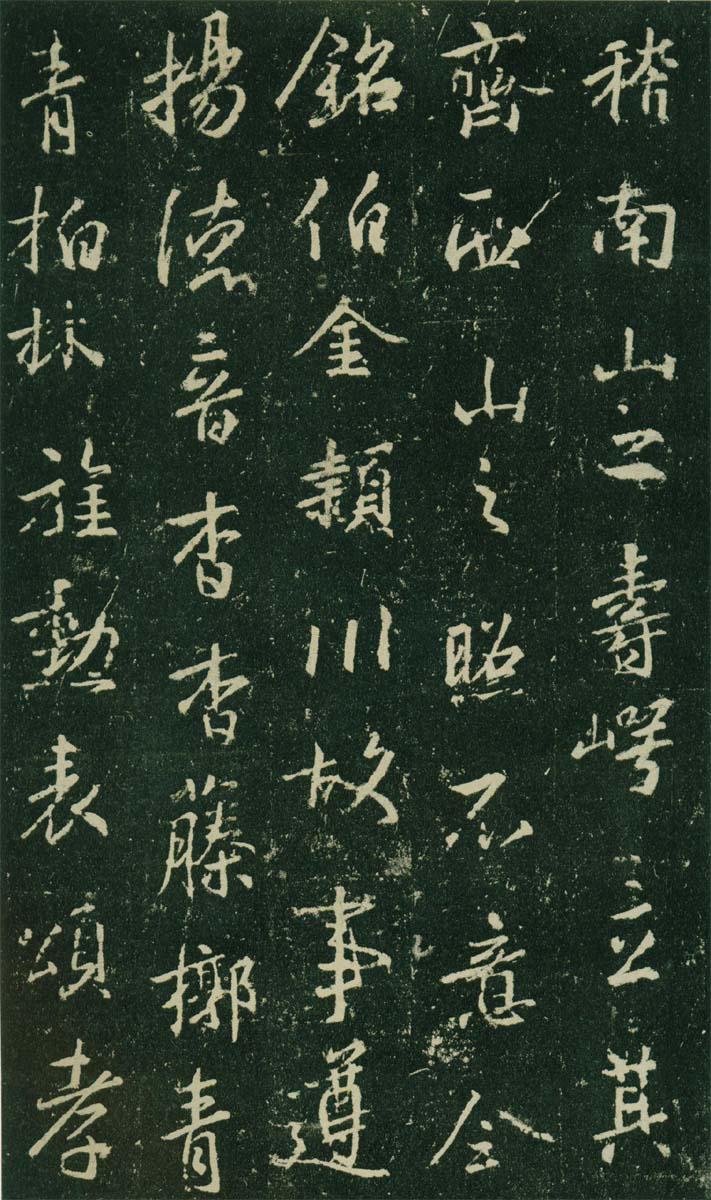 稽南山之壽嶧立其
齊岳山之照不意今
銘伯金顙川故事遵
揚德音杳杳藤槨青
青柏林旌勳表頌孝